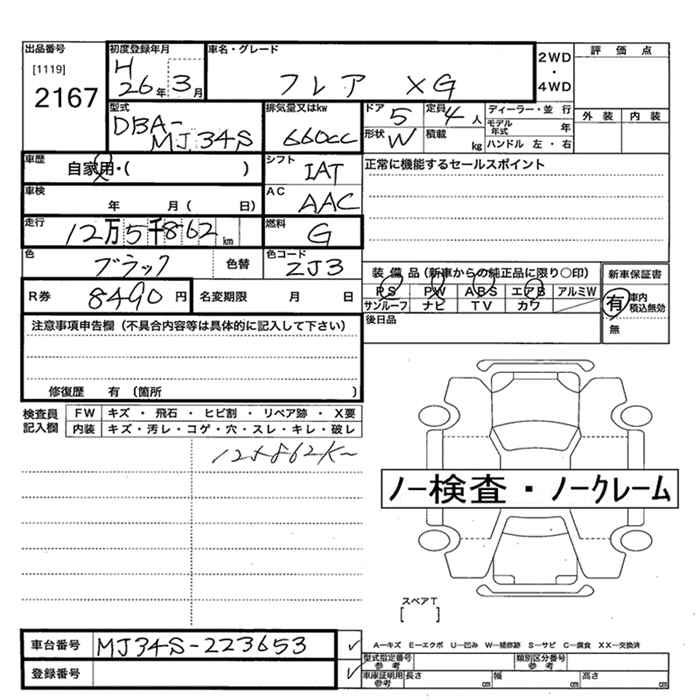 出品番号 初度登録年月 車名・グレード 評価点
[1119] H 2WD
2167 26年3月 フレア XG ・
4WD
型式 排気量又はkw ドア 5 定員 4人 ディーラー・並行 外装 内装
DBA- モデル年式 年
MJ34S 660cc 形状 W 積載 kg ハンドル 左・右
車歴 シフト 正常に機能するセールスポイント
自家用・( ) IAT
車検 AC
年 月( 日) AAC
走行 12万5千862km 燃料 G
色 ブラック 色替 色コード ZJ3 装備品(新車からの純正品に限り○印) 新車保証書
PS PW ABS エアB アルミW 有 車内積込無効
R券 8490円 名変期限 月 日 サンルーフ ナビ TV カワ
後日品 無
注意事項申告欄(不具合内容等は具体的に記入して下さい)
修復歴 有(箇所 )
検査員記入欄 FW キズ・飛石・ヒビ割・リペア跡・X要
内装 キズ・汚レ・コゲ・穴・スレ・キレ・破レ
125862K~
ノー検査・ノークレーム
スペアT
[ ]
A−キズ E−エクボ U−凹み W−補修跡 S−サビ C−腐食 XX−交換済
車台番号 MJ34S-223653 ✓ 型式指定番号 参考 類別区分番号 参考
登録番号 ✓ 車庫証明用参考 長さ cm 幅 cm 高さ cm